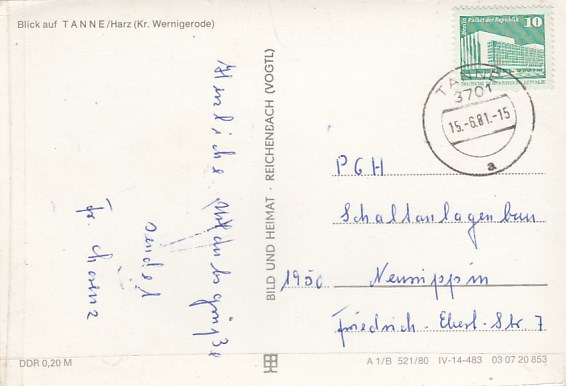 Blick auf TANNE/Harz (Kr. Wernigerode)
Herzliche Urlaubsgrüße
sendet
Fr.
BILD UND HEIMAT · REICHENBACH (VOGTL)
Palast der Republik 10
TANNE
3701
15.-6.81.-15
a
PGH
Schaltanlagenbau
1950 Neuruppin
Friedrich-Ebert-Str 7
DDR 0,20 M
A 1/B 521/80 IV-14-483 03 07 20 853